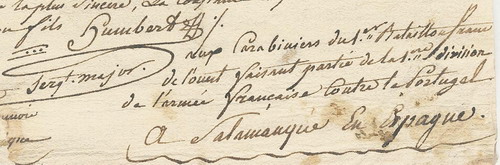 la plus sincère, La
fils Humbert
Sergt. major.
aux Carabiniers du 1er. Bataillon franc
de l'ouest faisant partie de la 1ère division
de l'armée française contre le Portugal
A Salamanque En Espagne.
que